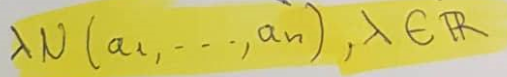 λN(a₁,---,aₙ), λ ∈ ℝ